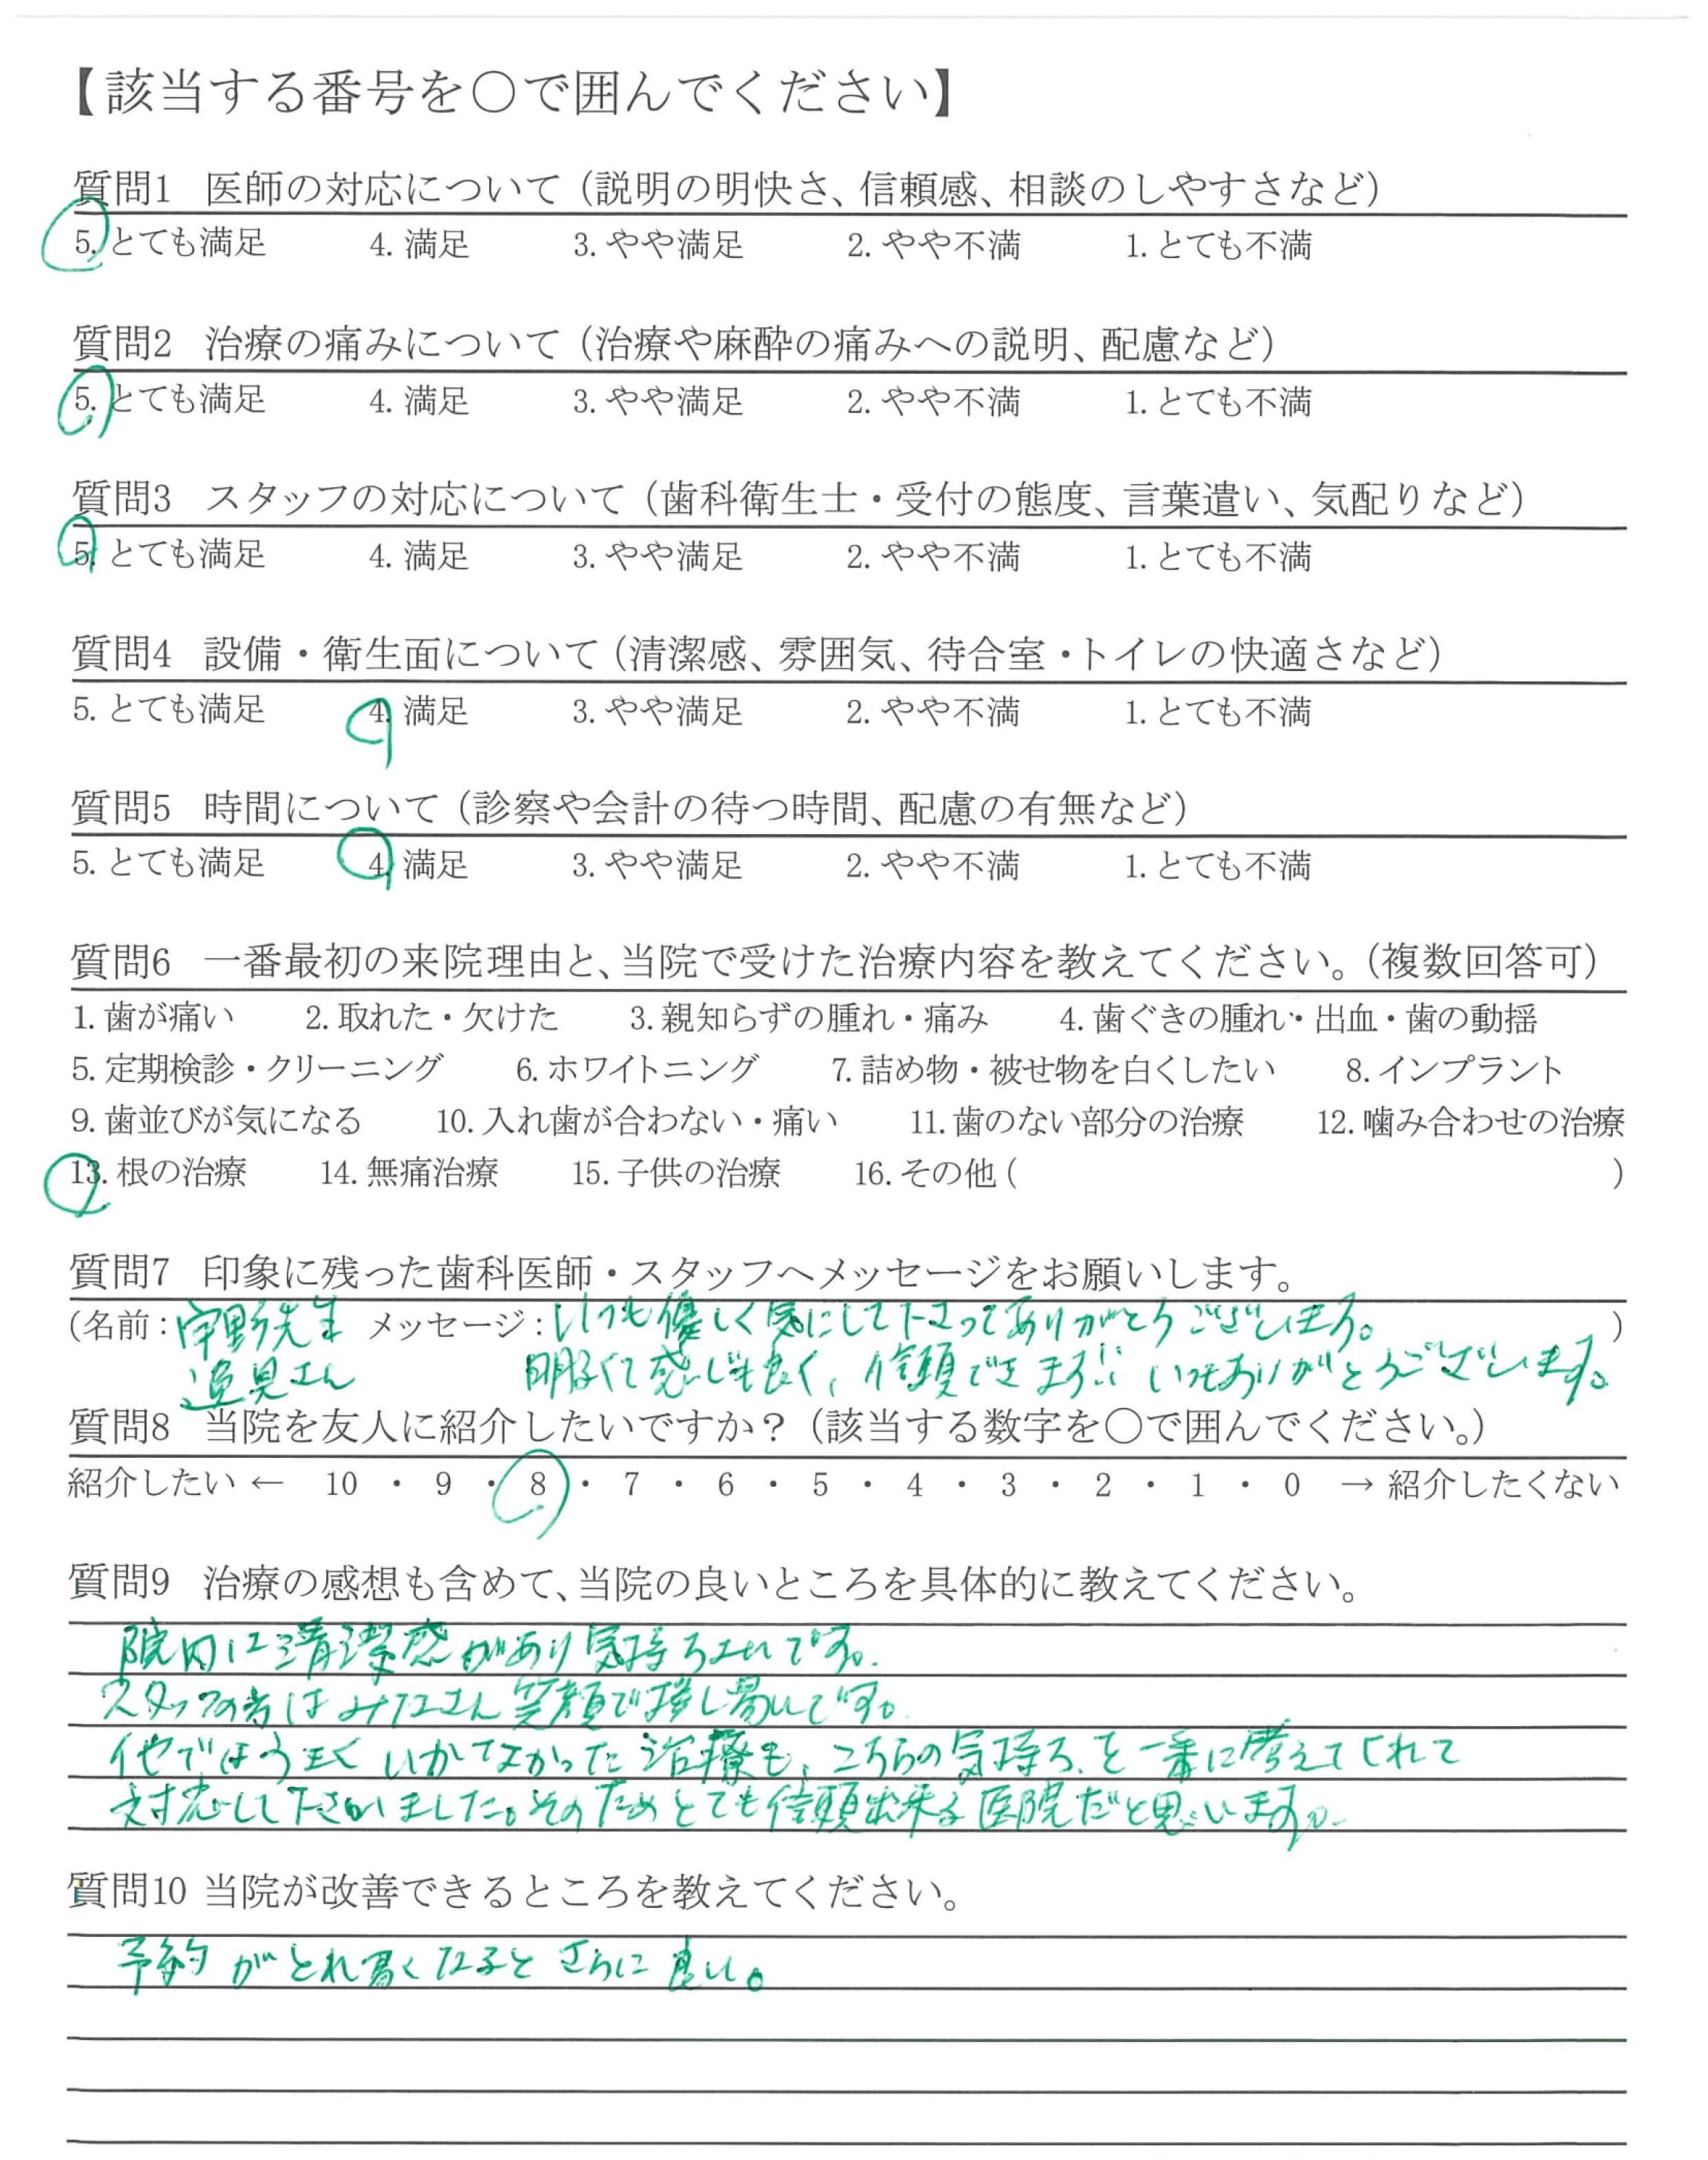 【該当する番号を○で囲んでください】
質問1 医師の対応について（説明の明快さ、信頼感、相談のしやすさなど）
5. とても満足 4. 満足 3. やや満足 2. やや不満 1. とても不満
質問2 治療の痛みについて（治療や麻酔の痛みへの説明、配慮など）
5. とても満足 4. 満足 3. やや満足 2. やや不満 1. とても不満
質問3 スタッフの対応について（歯科衛生士・受付の態度、言葉遣い、気配りなど）
5. とても満足 4. 満足 3. やや満足 2. やや不満 1. とても不満
質問4 設備・衛生面について（清潔感、雰囲気、待合室・トイレの快適さなど）
5. とても満足 4. 満足 3. やや満足 2. やや不満 1. とても不満
質問5 時間について（診察や会計の待つ時間、配慮の有無など）
5. とても満足 4. 満足 3. やや満足 2. やや不満 1. とても不満
質問6 一番最初の来院理由と、当院で受けた治療内容を教えてください。（複数回答可）
1. 歯が痛い 2. 取れた・欠けた 3. 親知らずの腫れ・痛み 4. 歯ぐきの腫れ・出血・歯の動揺
5. 定期検診・クリーニング 6. ホワイトニング 7. 詰め物・被せ物を白くしたい 8. インプラント
9. 歯並びが気になる 10. 入れ歯が合わない・痛い 11. 歯のない部分の治療 12. 噛み合わせの治療
13. 根の治療 14. 無痛治療 15. 子供の治療 16. その他 ( )
質問7 印象に残った歯科医師・スタッフへメッセージをお願いします。
(名前： 先生 メッセージ：いつも優しく気にして下さってありがとうございます。 )
さん 明るくて感じも良く、信頼できます!! いつもありがとうございます。
質問8 当院を友人に紹介したいですか？（該当する数字を○で囲んでください。）
紹介したい ← 10 ・ 9 ・ 8 ・ 7 ・ 6 ・ 5 ・ 4 ・ 3 ・ 2 ・ 1 ・ 0 → 紹介したくない
質問9 治療の感想も含めて、当院の良いところを具体的に教えてください。
院内に清潔感があり気持ちよいです。
スタッフの方はみなさん笑顔で接し易いです。
他ではうまくいかなかった治療も、こちらの気持ちを一番に考えてくれて
対応して下さいました。そのためとても信頼出来る医院だと思います。
質問10 当院が改善できるところを教えてください。
予約がとれ易くなるとさらに良い。